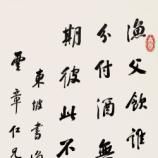 漁父飲誰
分付酒無
期彼此不
東坡書
雲章仁兄